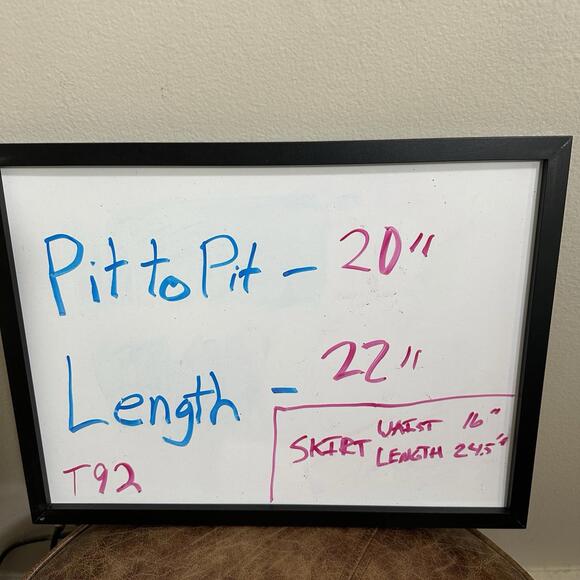 Pit to Pit - 20"
Length - 22"
SKIRT WAIST 16"
LENGTH 24.5"
T92